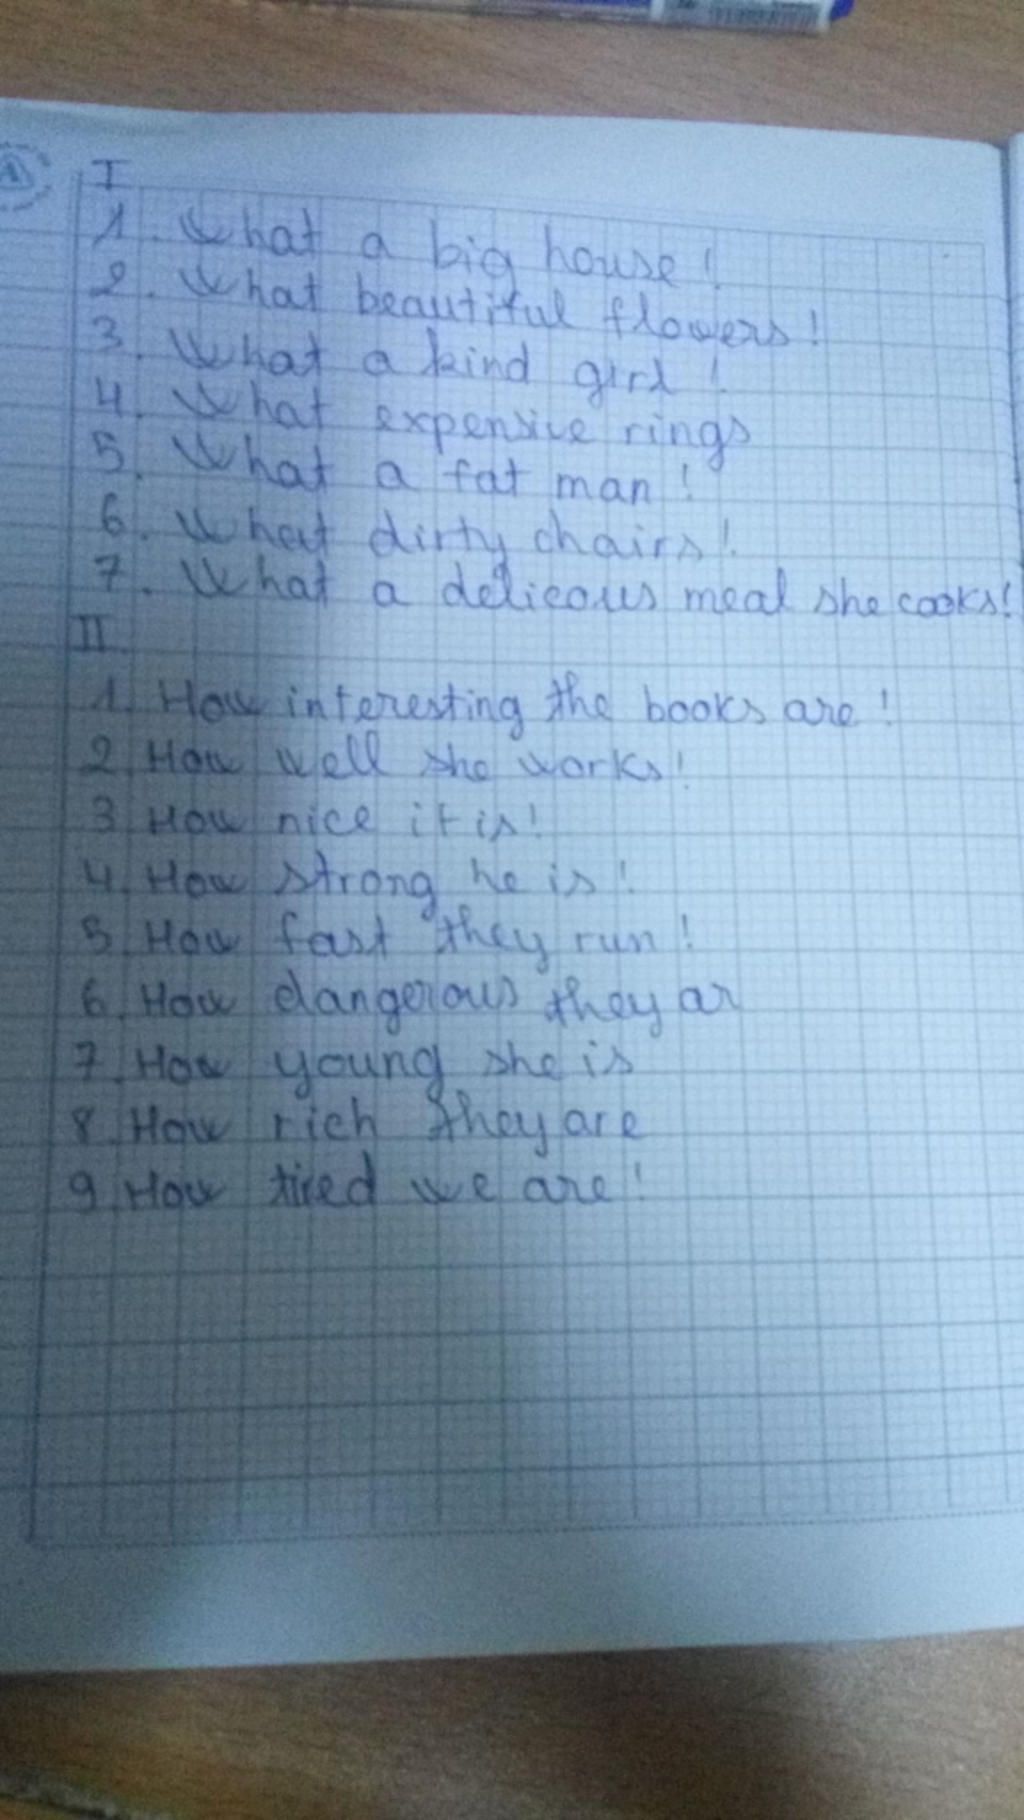 I
1. What a big house!
2. What beautiful flowers!
3. What a kind girl!
4. What expensive rings
5. What a fat man!
6. What dirty chairs!
7. What a delicous meal she cooks!
II
1. How interesting the books are!
2. How well she works!
3. How nice it is!
4. How strong he is!
5. How fast they run!
6. How dangerous they ar
7. How young she is
8. How rich they are
9. How tired we are!